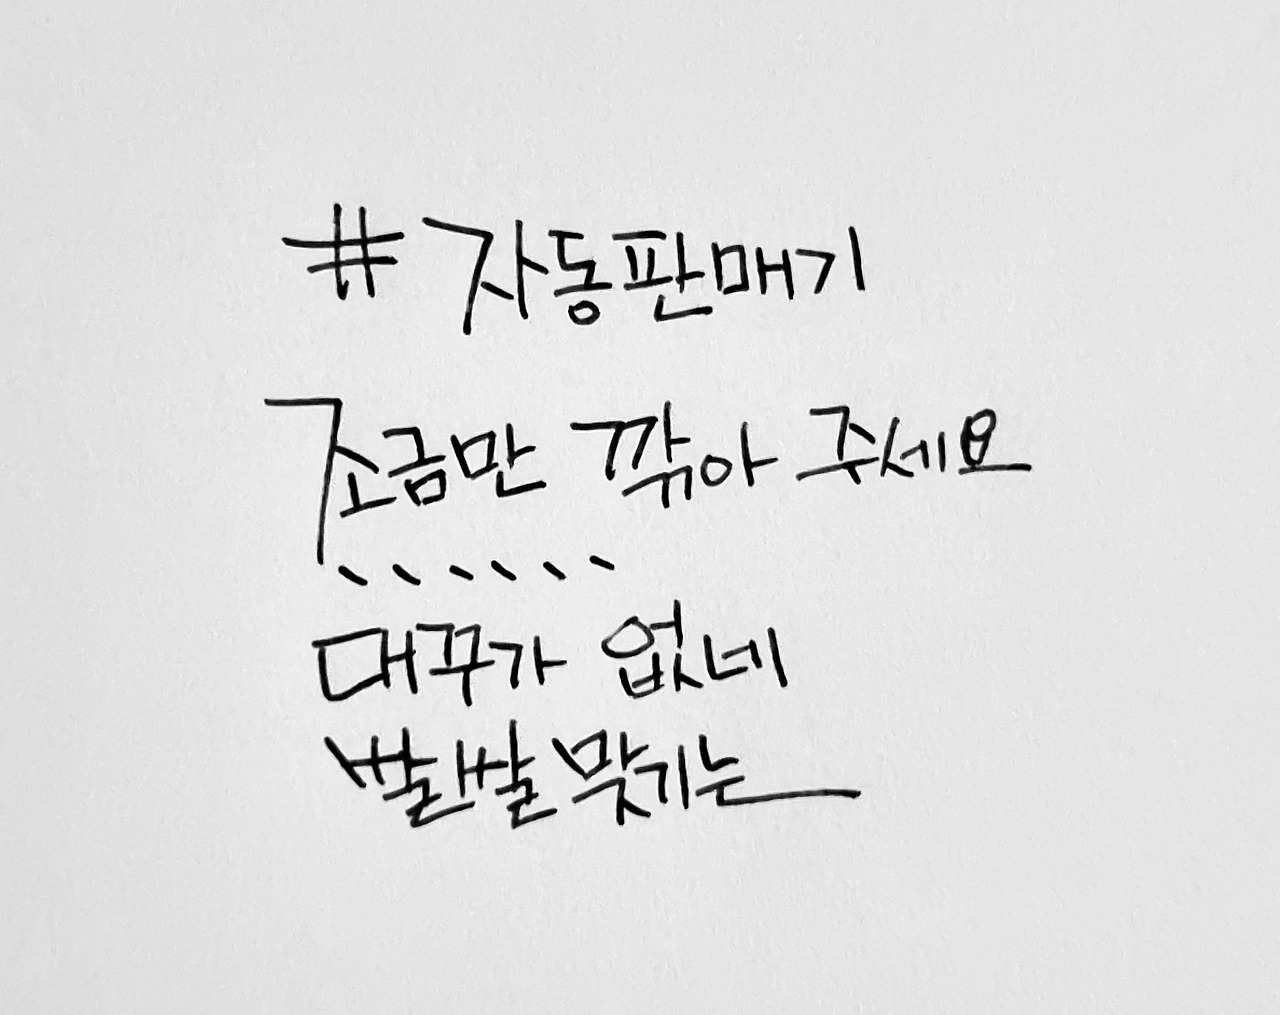 # 자동판매기
조금만 깎아 주세요
、、、、、、
대꾸가 없네
쌀쌀맞기는